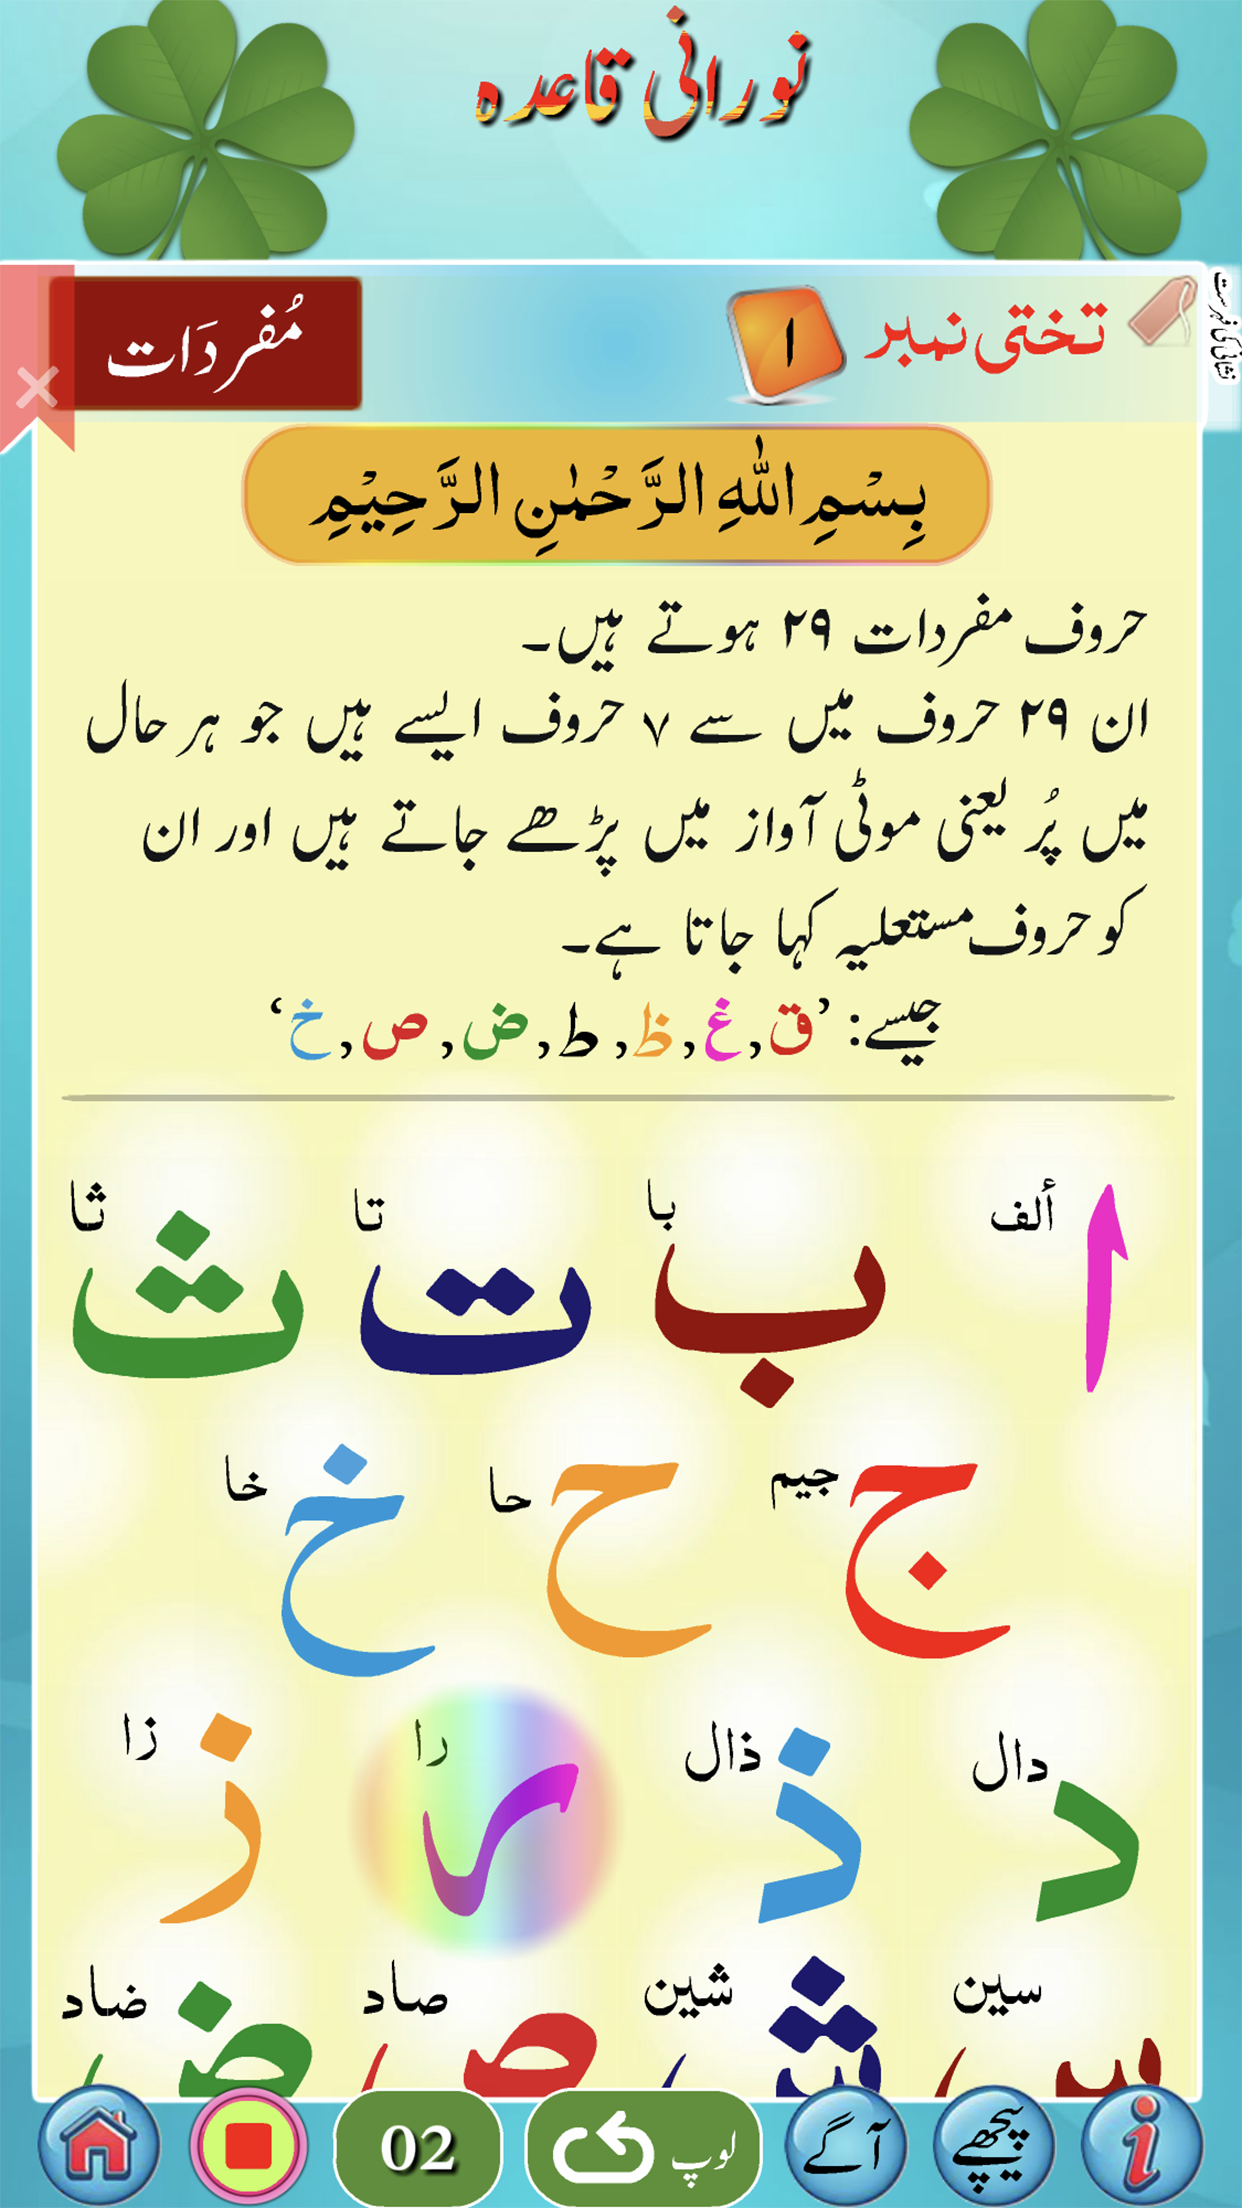 نورانی قاعدہ
تختی نمبر ۱ مُفردَات
نشانی کی فہرست
بِسْمِ اللهِ الرَّحْمٰنِ الرَّحِيْمِ
حروف مفردات ۲۹ ہوتے ہیں۔
ان ۲۹ حروف میں سے ۷ حروف ایسے ہیں جو ہر حال
میں پُر یعنی موٹی آواز میں پڑھے جاتے ہیں اور ان
کو حروف مستعلیہ کہا جاتا ہے۔
جیسے: ’ق,غ,ظ,ط,ض,ص,خ‘
ا ألف ب با ت تا ث ثا
ج جیم ح حا خ خا
د دال ذ ذال ر را ز زا
س سین ش شین ص صاد ض ضاد
پیچھے آگے لوپ 02